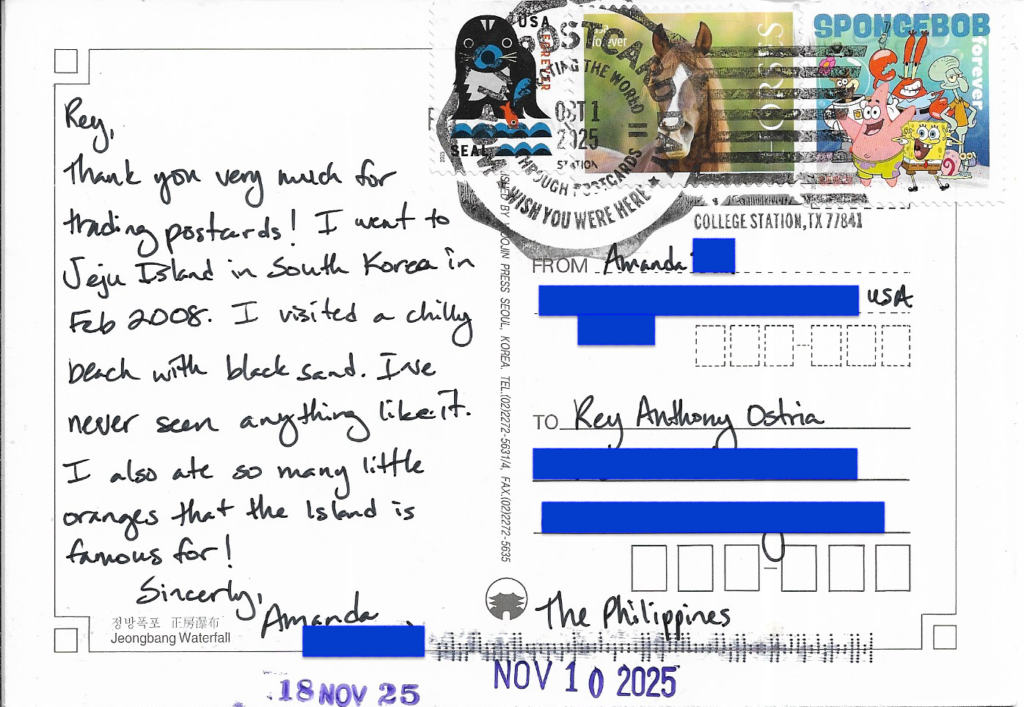 Rey,
Thank you very much for
trading postcards! I went to
Jeju Island in South Korea in
Feb 2008. I visited a chilly
beach with black sand. I've
never seen anything like it.
I also ate so many little
oranges that the Island is
famous for!
Sincerely,
Amanda
정방폭포 正房瀑布
Jeongbang Waterfall
18 NOV 25
NOV 10 2025
USA
FOREVER
SEAL
2025
forever
HORSES
SPONGEBOB
forever
POSTCARD
THE WORLD
OCT 1
2025
STATION
THROUGH POSTCARDS
WISH YOU WERE HERE
COLLEGE STATION, TX 77841
PRESS SEOUL, KOREA. TEL.(02)2272-5631/4, FAX.(02)2272-5635
FROM Amanda
USA
TO Rey Anthony Ostria
The Philippines